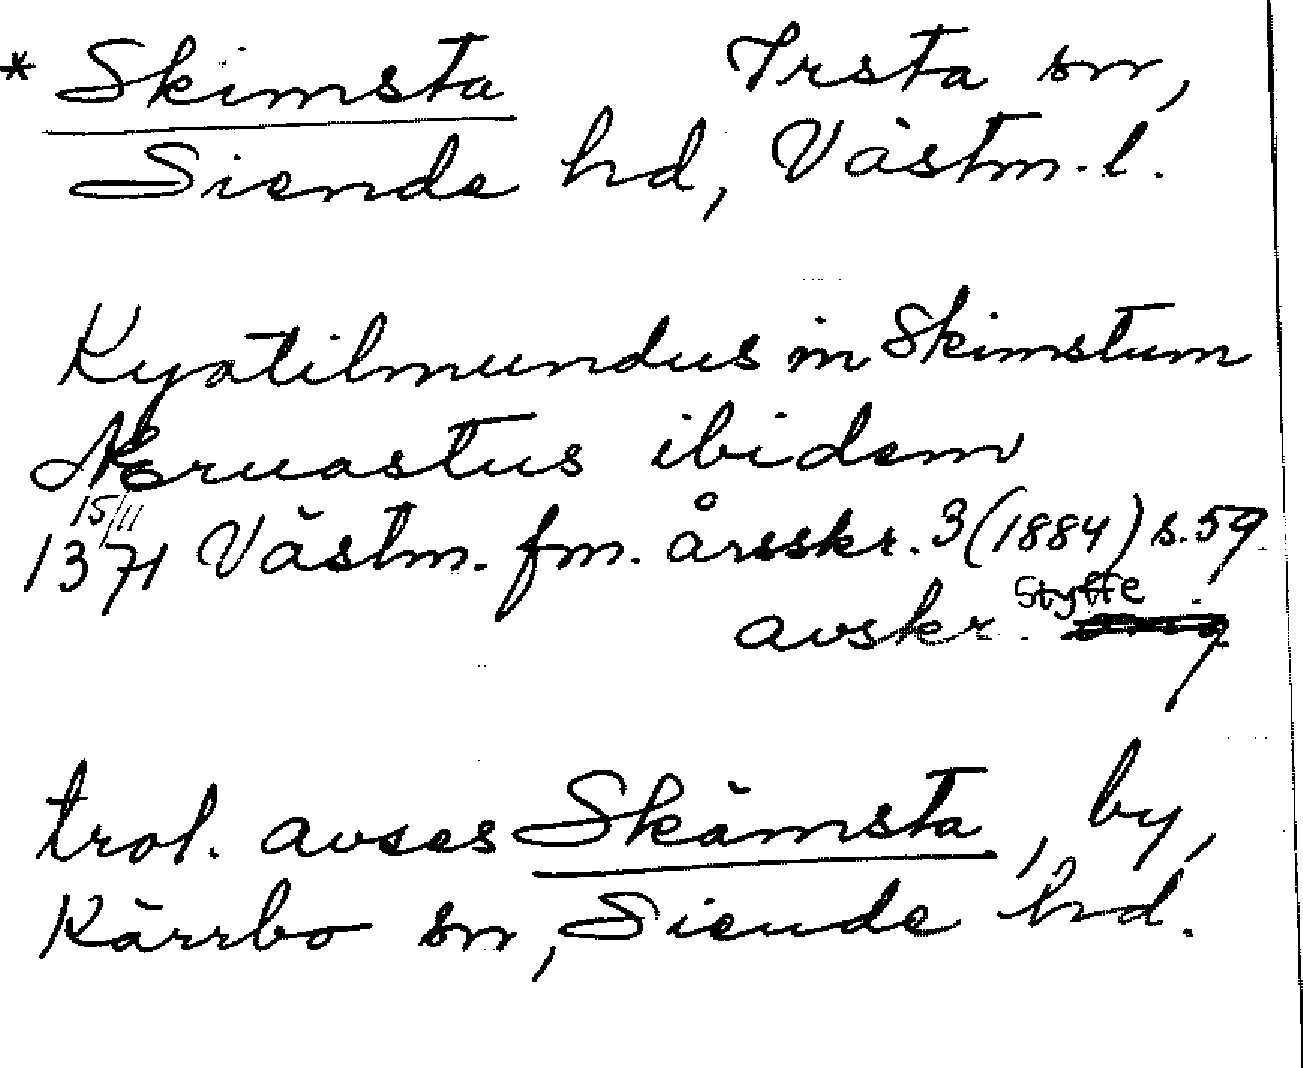 * Skimsta Irsta sn,
Siende hd, Västm. l.
Kyatilmundus in Skimstum
Neruastus ibidem
15/11
1371 Västm. fm. årsskr. 3 (1884) s. 59
avskr. Styffe
trol. avses Skämsta, by,
Kärrbo sn, Siende hd.